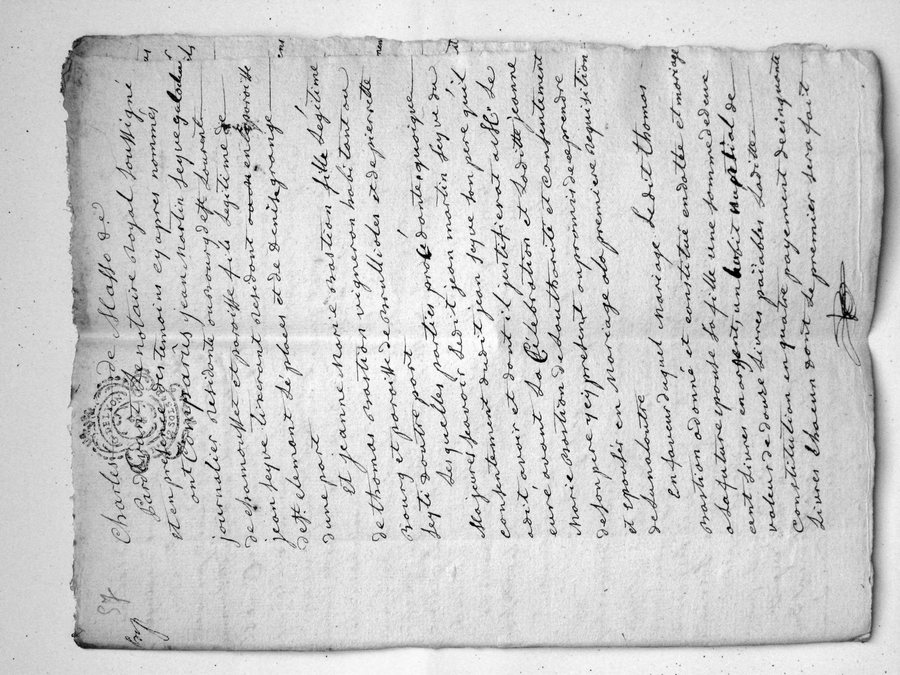 57
Charles de Masso &
Pardevant le notaire Royal soussigné
et en presence des temoins cy apres nommés
ont comparües jean Martin seyve
journalier residant au bourg de st Laurent
de chamousset et paroisse fils Legitime de
jean seyve tixerant residant en la paroisse
de st clement Les places et de denise grange
dune part
Et jeanne Marie Bastion fille Legitime
de thomas Bastion vigneron habitant au
Bourg et paroisse de Brullioles et de pierrette
seyti dautre part
Lesquelles parties procedantes quoique
Majeures scavoir Ledit jean martin seyve du
consentement dudit jean seyve son pere qu'il
a dit avoir et dont il justifierat a Mr Le
curé avant La Celebration et Laditte jeanne
Marie Bastion de Lauthorité et consentement
de son pere ycy present ont promis de ce prendre
et Epouser en Mariage a La premiere Requisition
de Lun Lautre
En faveur duquel Mariage Ledit thomas
Bastion a donné et constitué en dotte et mariage
a La future epouse sa fille une somme de deux
cent Livres en argent, un habit nuptial de
valeur de douze Livres païables Laditte
Constitution en quatre payement de cinquante
Livres Chacun dont Le premier sera fait